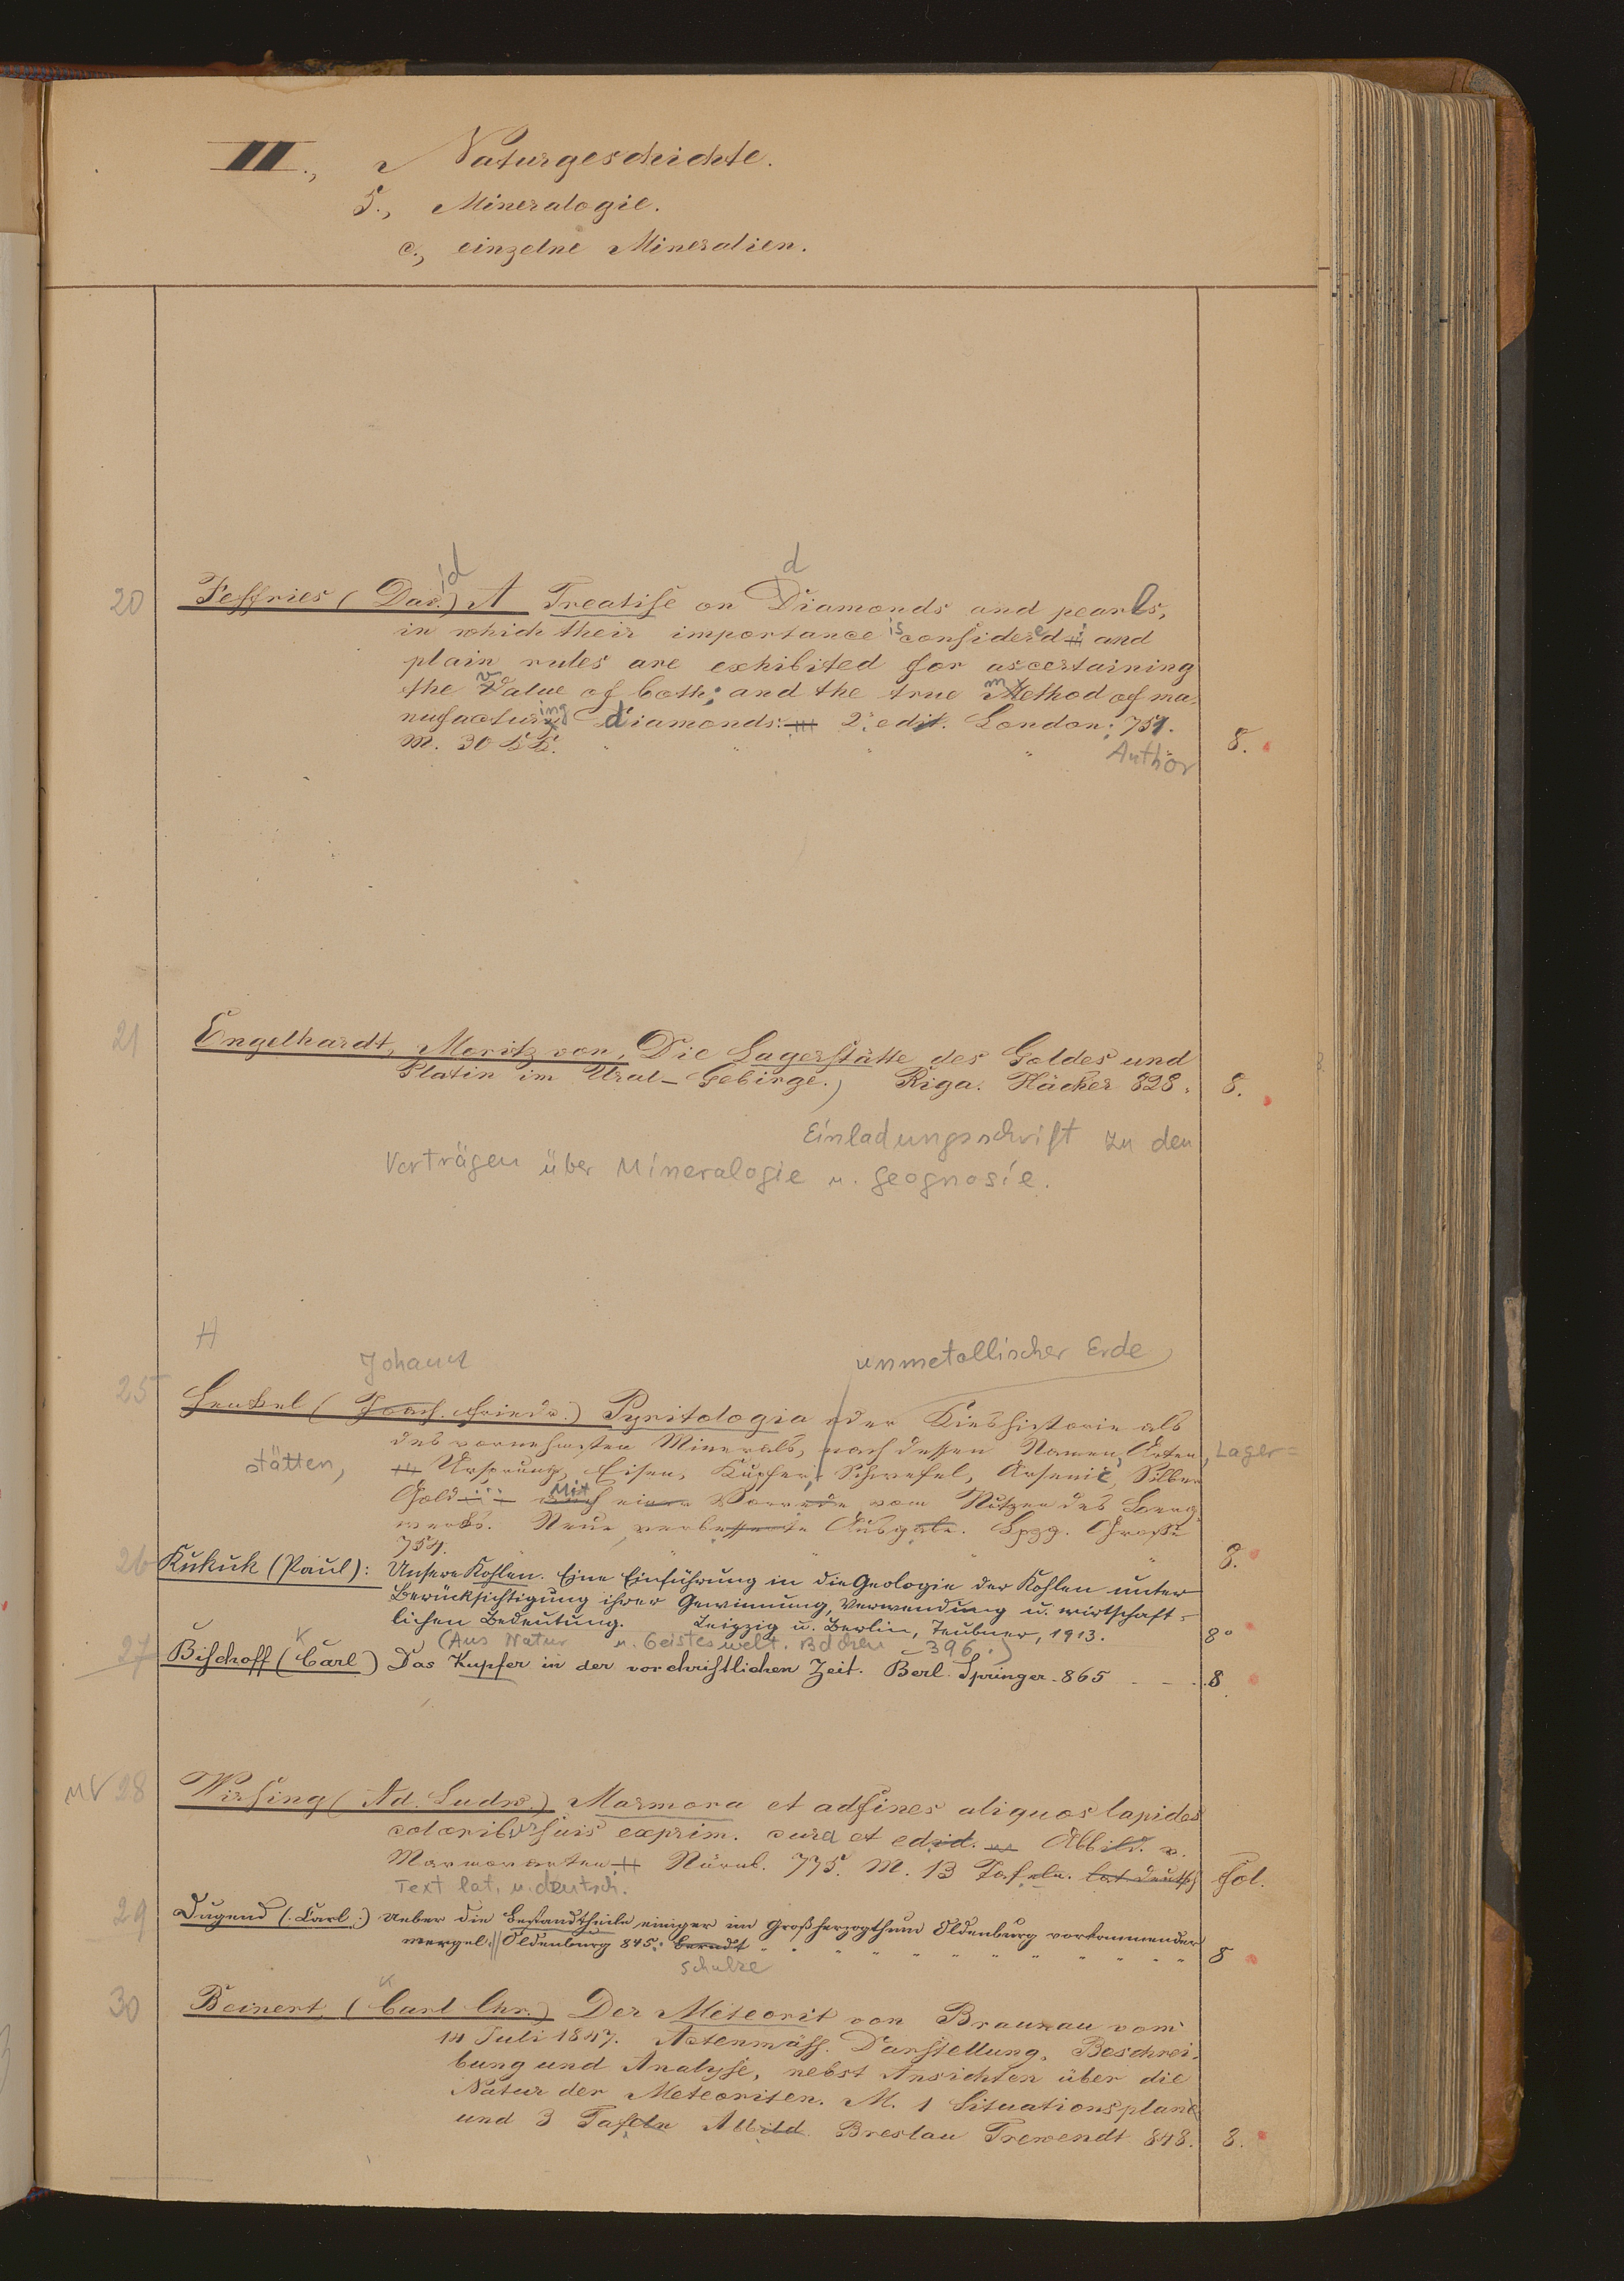 III., Naturgeschichte.
5., Mineralogie.
c., einzelne Mineralien.
id d
20 Jeffries (Dav.) A Treatise on Diamonds and pearls,
in which their importance is considered and
plain rules are exhibited for ascertaining
the value of both; and the true Method of ma-
nufacturing diamonds: 2. edit. London: 751.
M. 30 KK. 8.
Author
21 Engelhardt, Moritz von, Die Lagerstätte des Goldes und
Platin im Ural-Gebirge.) Riga. Häcker 828. 8.
Einladungsschrift zu den
Vorträgen über Mineralogie u. Geognosie.
H
Johann unmetallischer Erde
25 Henkel (Joach. Friedr.) Pyritologia oder Kieshistorie als
des vornehmsten Minerals, nach dessen Namen, Arten, Lager=
stätten, Ursprung, Eisen, Kupfer, Schwefel, Arsenic, Silber
Gold Mit einer Vorrede vom Nutzen des Berg-
werks. Neue verbesserte Ausgabe. Lpzg. Grosse
754. 8.
26 Kukuk (Paul): Unsere Kohlen. Eine Einführung in die Geologie der Kohlen unter
Berücksichtigung ihrer Gewinnung, Verwendung u. wirtschaft=
lichen Bedeutung. Leipzig u. Berlin, Teubner, 1913. 8°
(Aus Natur u. Geisteswelt. Bdchen 396.)
K
27 Bischoff (Carl) Das Kupfer in der vorchristlichen Zeit. Berl. Springer. 865 8
28 Wirsing (Ad. Ludw.) Marmora et adfines aliquos lapides
coloribus suis exprim. cura et edid. Abbild. v.
Marmorarten Nürnb. 775. M. 13 Tafeln. lat. deutsch fol.
Text lat. u. deutsch.
29 Dugend (Carl.) Ueber die Bestandtheile einiger im Großherzogthum Oldenburg vorkommender
Mergel. Oldenburg 845. berndt 8
Schulze
K
30 Beinert, (Carl Chr.) Der Meteorit von Braunau vom
14 Juli 1847. Actenmäss. Darstellung, Beschrei-
bung und Analyse, nebst Ansichten über die
Natur der Meteoriten. M. 1 Situationsplane
und 3 Tafeln Abbild. Breslau Trewendt 848. 8.